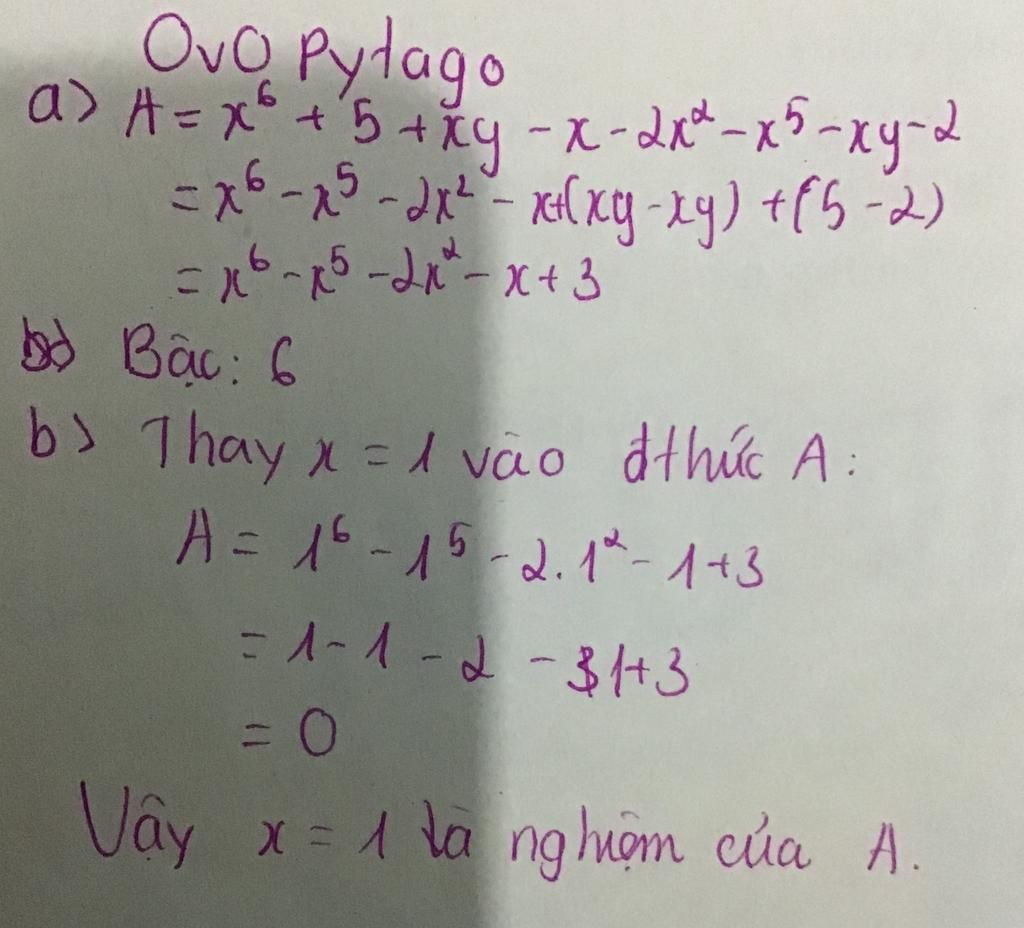 OvO Pytago
a) A = x⁶ + 5 + xy - x - 2x² - x⁵ - xy - 2
= x⁶ - x⁵ - 2x² - x + (xy - xy) + (5 - 2)
= x⁶ - x⁵ - 2x² - x + 3
Bậc: 6
b) Thay x = 1 vào đthức A:
A = 1⁶ - 1⁵ - 2.1² - 1 + 3
= 1 - 1 - 2 - 1 + 3
= 0
Vậy x = 1 là nghiệm của A.